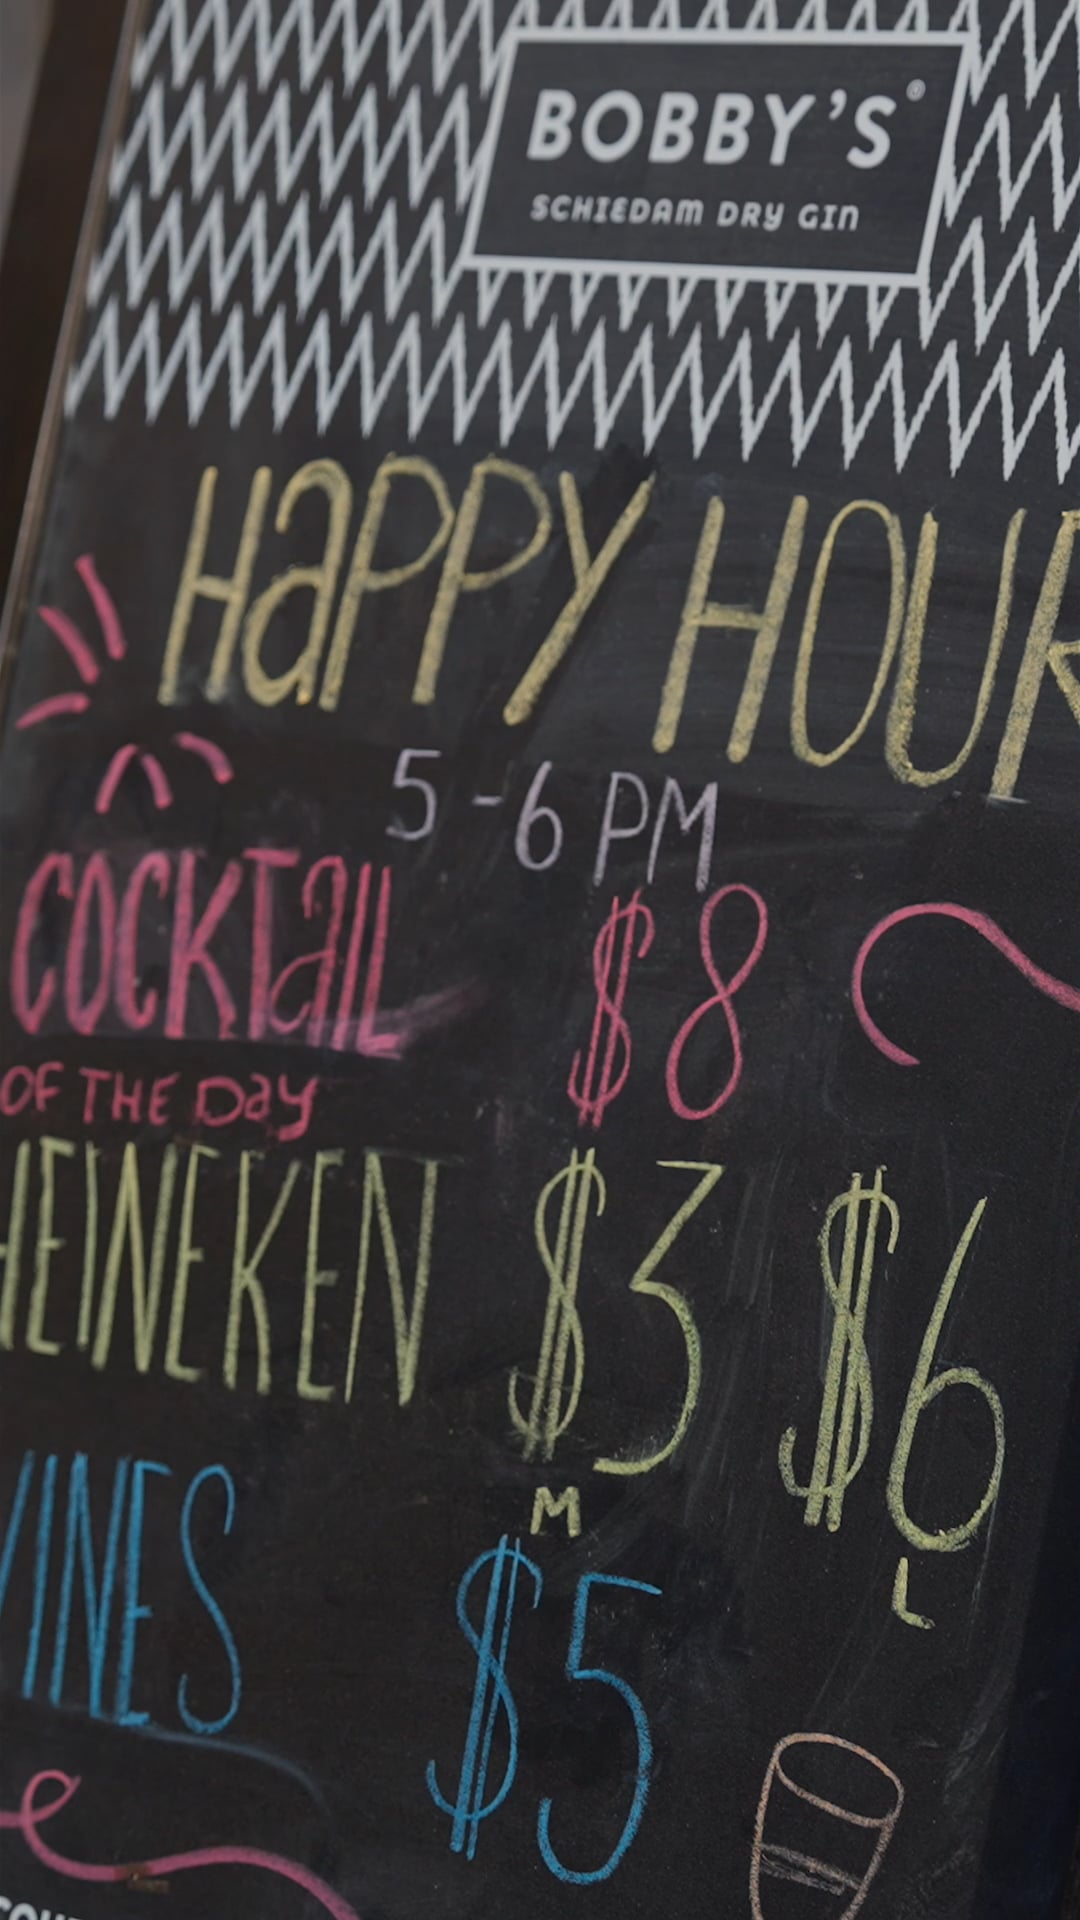 BOBBY'S®
SCHIEDAM DRY GIN
HaPPY HOUR
5-6 PM
COCKTaIL $8
OF THE Day
HEINEKEN $3 $6
M L
WINES $5